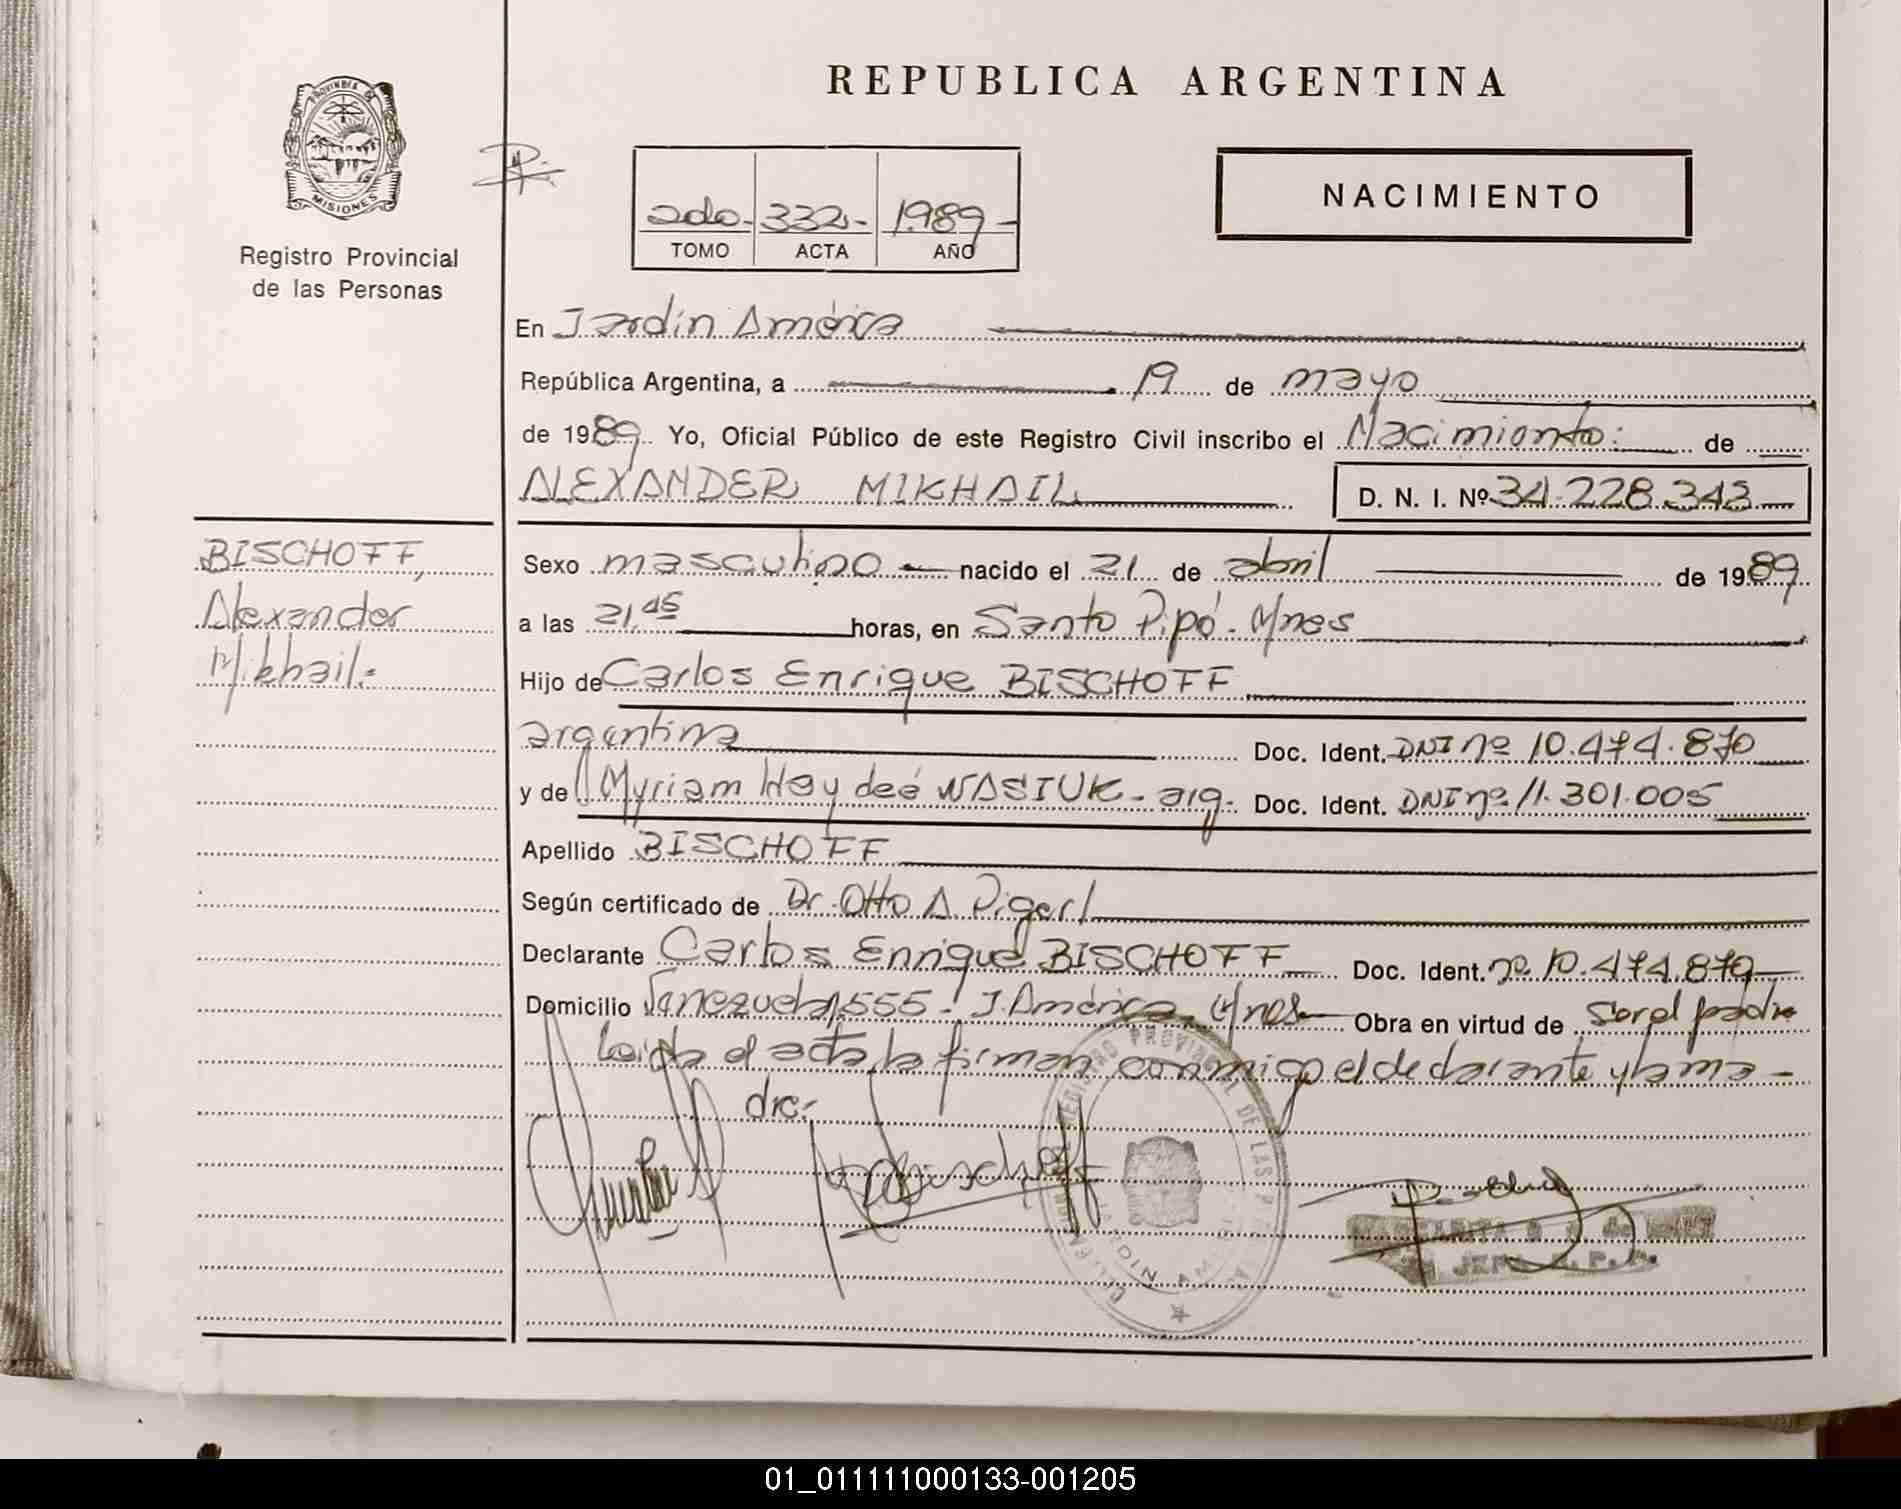 REPUBLICA ARGENTINA
PROVINCIA DE
MISIONES
Registro Provincial
de las Personas
2do.- 332.- 1.989.-
TOMO ACTA AÑO
NACIMIENTO
En Jardín América
República Argentina, a 19 de mayo
de 1989 Yo, Oficial Público de este Registro Civil inscribo el Nacimiento: de
ALEXANDER MIKHAIL D. N. I. Nº 34.228.343
BISCHOFF,
Alexander
Mikhail.-
Sexo masculino nacido el 21 de abril de 1989
a las 21,45 horas, en Santo Pipó - Mnes
Hijo de Carlos Enrique BISCHOFF
argentina Doc. Ident. DNI nº 10.474.870
y de Myriam Haydeé WASIUK - arg.- Doc. Ident. DNI nº 11.301.005
Apellido BISCHOFF
Según certificado de Dr. Otto A. Pigerl
Declarante Carlos Enrique BISCHOFF Doc. Ident. nº 10.474.879
Domicilio Venezuela 555 - J. América - Mnes Obra en virtud de ser el padre
Leída el acta la firman conmigo el declarante y la ma-
dre.-
REGISTRO PROVINCIAL DE LAS
JARDIN AMERICA
JEFA R.P.P.
01_011111000133-001205